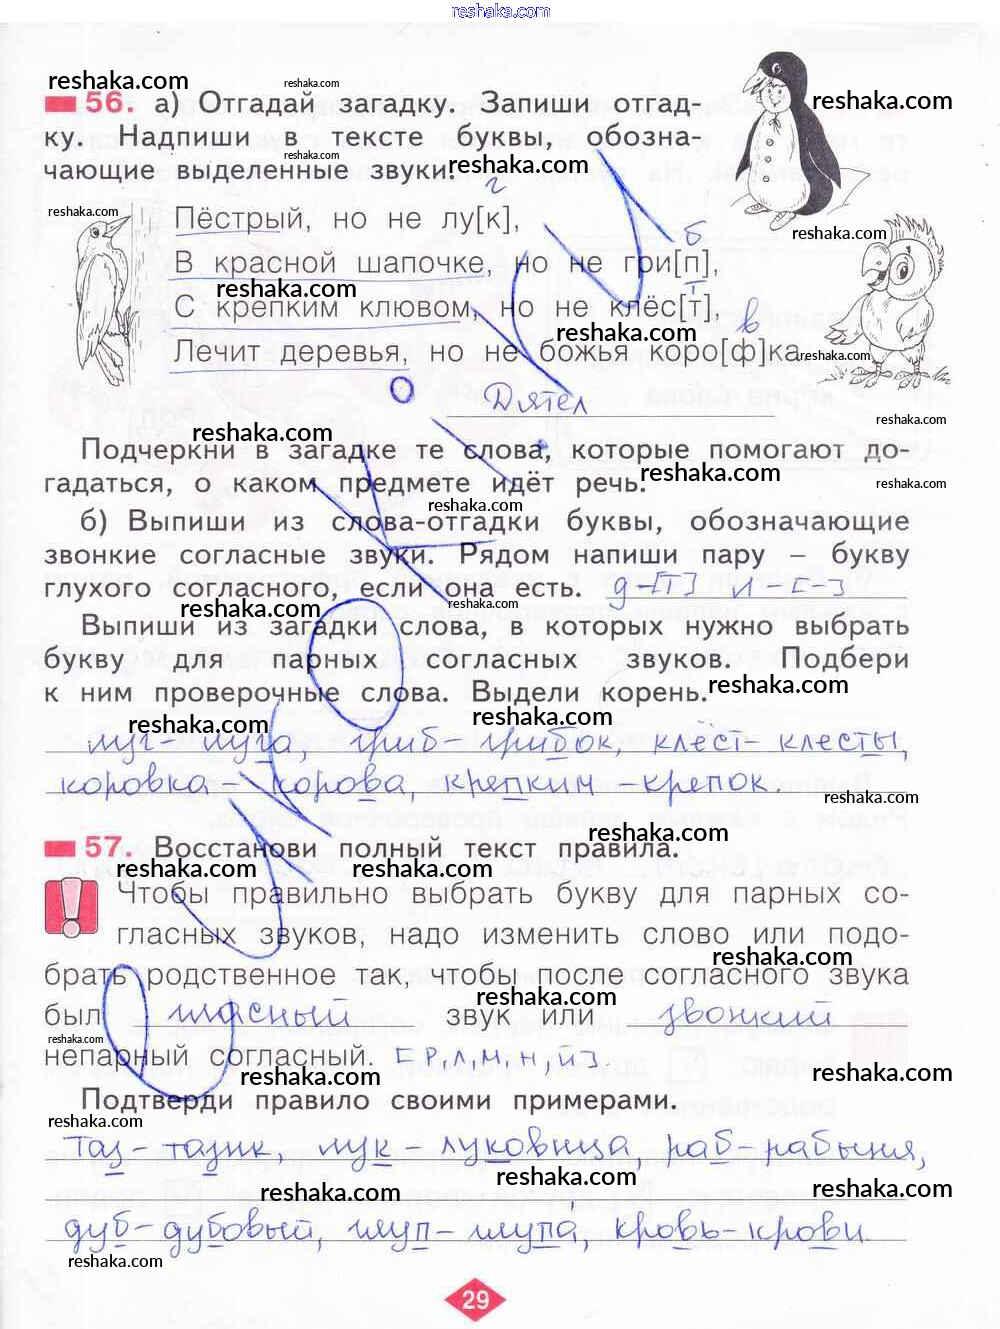 reshaka.com
reshaka.com reshaka.com
56. а) Отгадай загадку. Запиши отгад-
reshaka.com
ку. Надпиши в тексте буквы, обозна-
reshaka.com reshaka.com
чающие выделенные звуки.
reshaka.com г
Пёстрый, но не лу[к],
reshaka.com б
В красной шапочке, но не гри[п],
reshaka.com т
С крепким клювом, но не клёс[т],
reshaka.com в
Лечит деревья, но не божья коро[ф]ка.
reshaka.com
Дятел
reshaka.com reshaka.com
Подчеркни в загадке те слова, которые помогают до-
reshaka.com reshaka.com
гадаться, о каком предмете идёт речь.
reshaka.com
б) Выпиши из слова-отгадки буквы, обозначающие
звонкие согласные звуки. Рядом напиши пару – букву
глухого согласного, если она есть. д-[т] л-[-]
reshaka.com
Выпиши из загадки слова, в которых нужно выбрать
букву для парных согласных звуков. Подбери
к ним проверочные слова. Выдели корень.
reshaka.com
reshaka.com reshaka.com
луг - луга, гриб - грибок, клёст - клесты,
коровка - корова, крепким - крепок.
reshaka.com
reshaka.com
57. Восстанови полный текст правила.
reshaka.com reshaka.com
Чтобы правильно выбрать букву для парных со-
гласных звуков, надо изменить слово или подо-
reshaka.com
брать родственное так, чтобы после согласного звука
reshaka.com
был гласный звук или звонкий
reshaka.com
непарный согласный. [р, л, м, н, й]
reshaka.com reshaka.com
Подтверди правило своими примерами.
reshaka.com
таз - тазик, лук - луковица, раб - рабыня,
reshaka.com reshaka.com reshaka.com
дуб - дубовый, глуп - глупа, кровь - крови.
reshaka.com
29